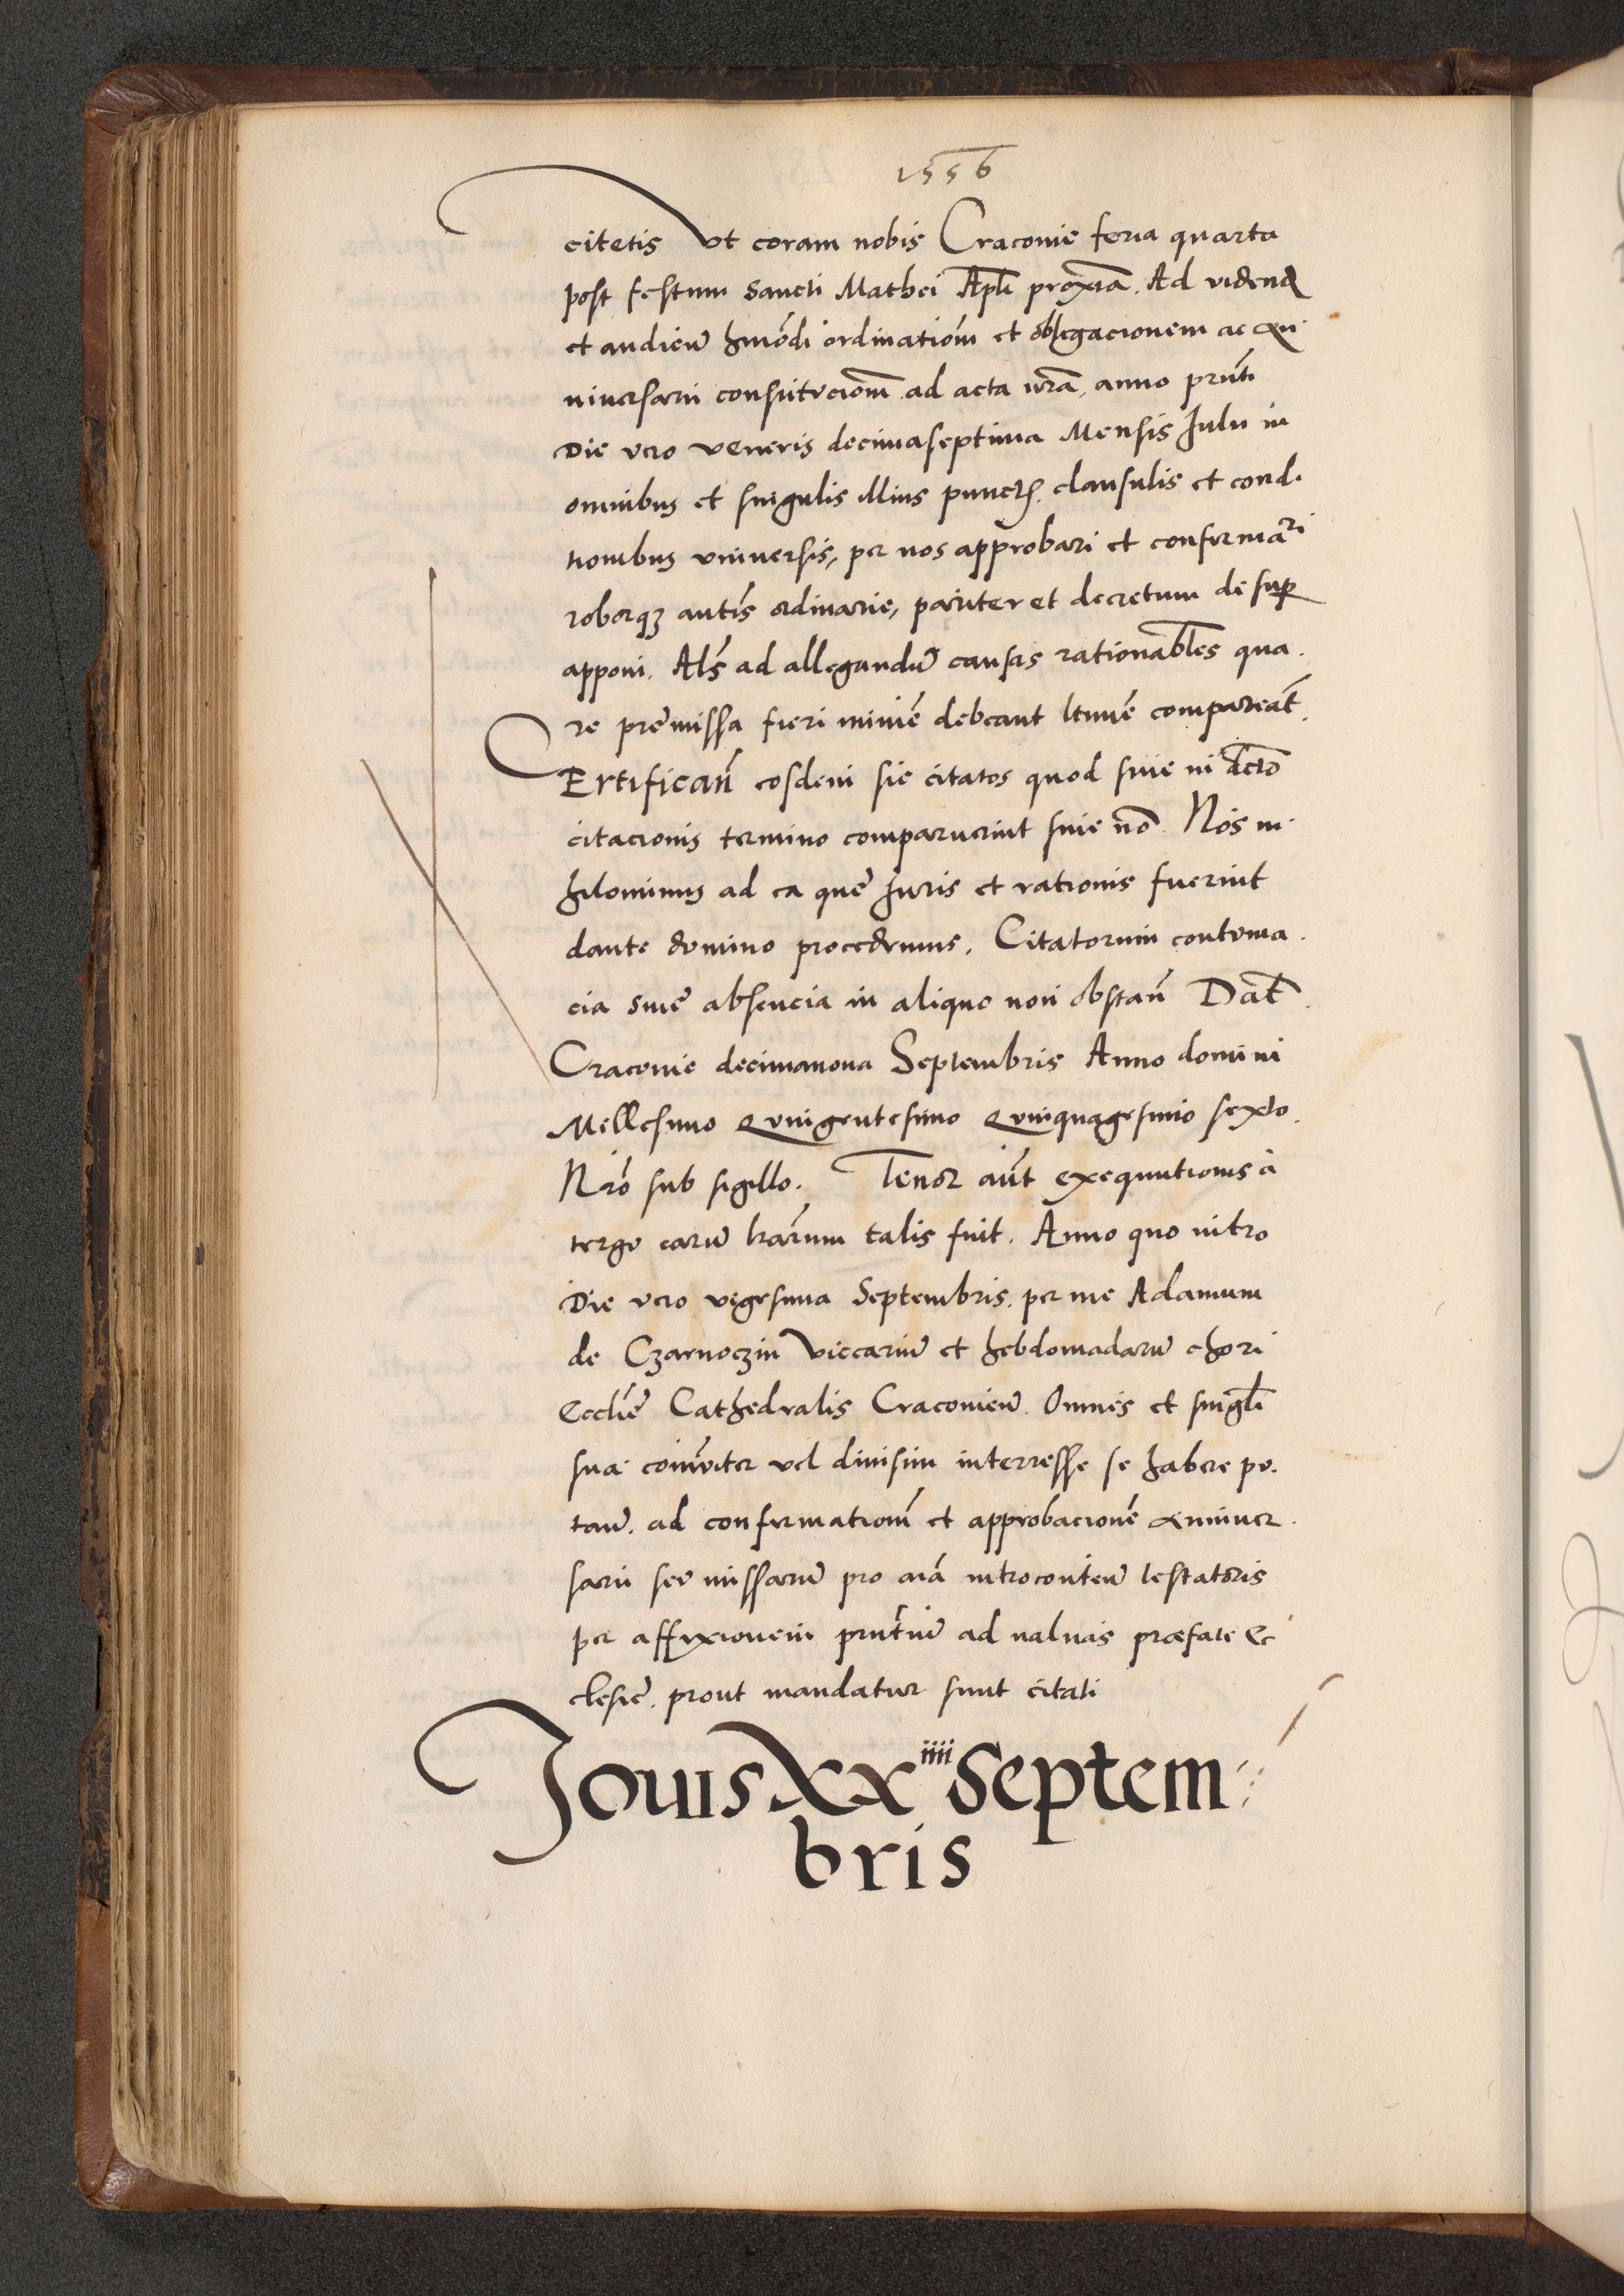 1556
citetis Vt coram nobis Craconie feria quarta
post festum Sancti Mathei Apli proxīā. Ad videnđ
et audień hmōdi ordinatiōm et obligacionem ac An
niversarii constitvciōm ad acta nrā, anno prñti
Die vero veneris decimaseptima Mensis Julii in
omnibus et singulis illius punctis, clausulis et condi
tionibus vniversis, per nos approbari et confirmari
roborqꝫ autīs ordinarie, pariter et decretum de super
apponi. Als̄ ad allegandū causas rationabłes qua
re premissa fieri mimē debeant ltimē compareāt.
CErtificań eosdem sic citatos quod sive in dcto
citacionis termino comparuerint sive nō. Nos ni
hilominus ad ea que Juris et rationis fuerint
dante domino procedemus, Citatorum contvma
cia sive absencia in aliquo non obstań Dat̄
Craconie decimanona Septembris Anno domini
Millesimo Qvingentesimo Qvinquagesimo sexto.
Nr̄o sub sigillo. Tenor aūt exequutionis à
tergo earū lrārum talis fuit. Anno quo intro
Die vero vigesima Septembris, per me Adamum
de Czarnoczin Viccariū et hebdomadariū chori
Ecclie Cathedralis Cracovień. Omnes et singłi
sua coīuiter vel divisim interresse se habere pu
tań. ad confirmatiōm et approbacionē Anniver
sarii sev missarū pro aīā introcontenī testatoris
per affixionem prn̄tiū ad valvas præfate Ec
clesie. prout mandatur sunt citati
Jouis XXiiii Septem
bris